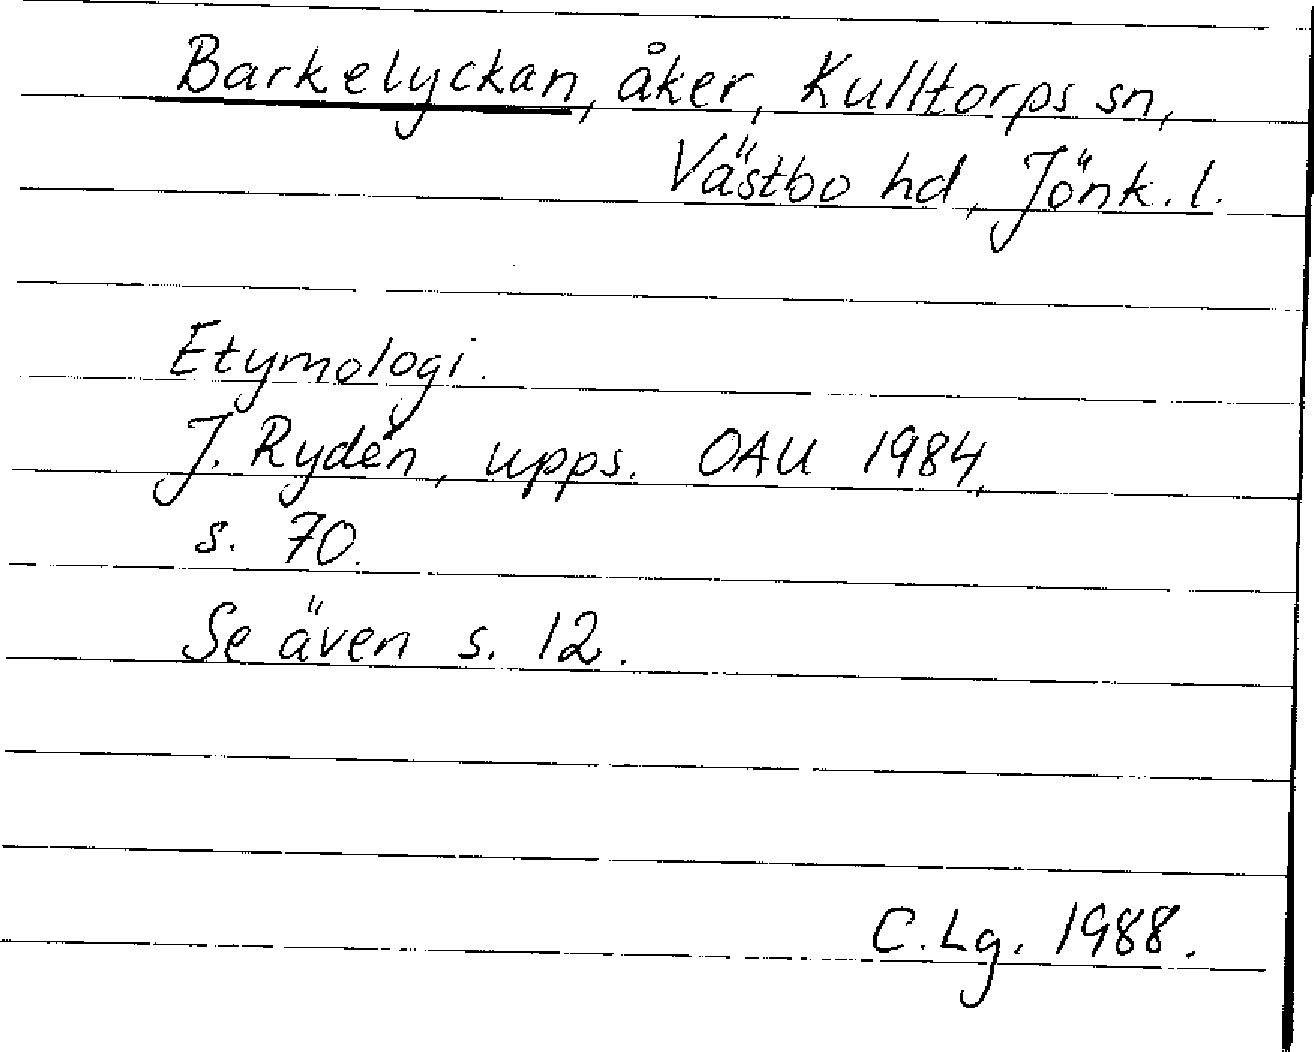 Barkelyckan, åker, Kulltorps sn,
Västbo hd, Jönk. l.
Etymologi.
J. Rydén, upps. OAU 1984,
s. 70.
Se även s. 12.
C. Lg. 1988.